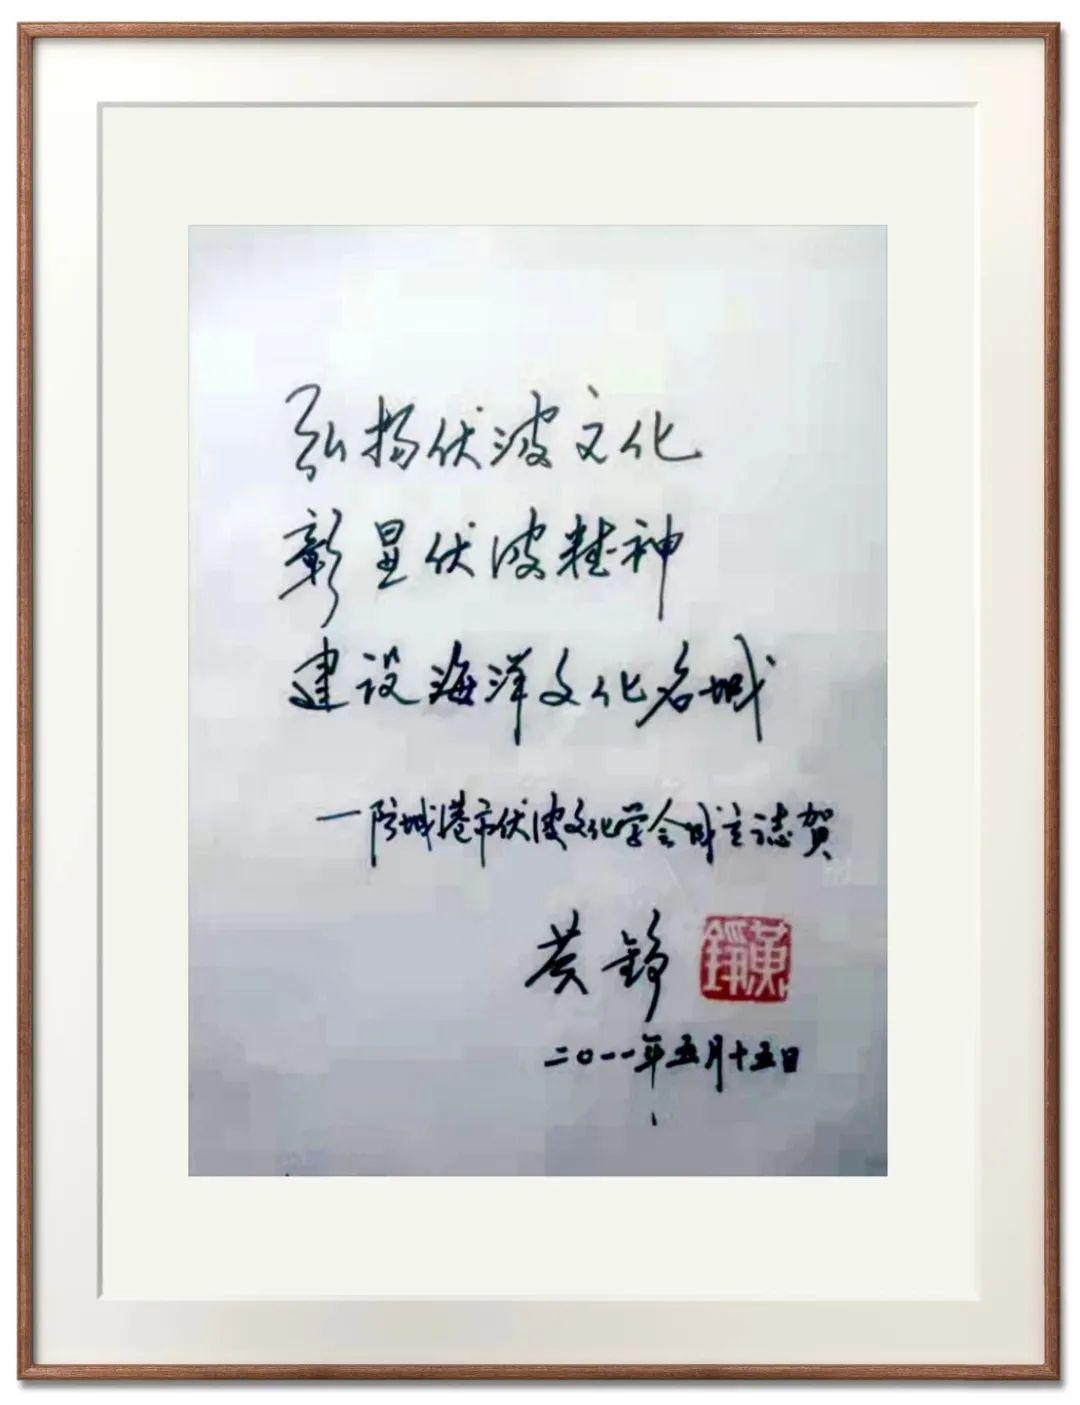 弘扬伏波文化
彰显伏波精神
建设海洋文化名城
一防城港市伏波文化学会成立誌賀
黄铮
黄錚
二〇一一年五月十五日